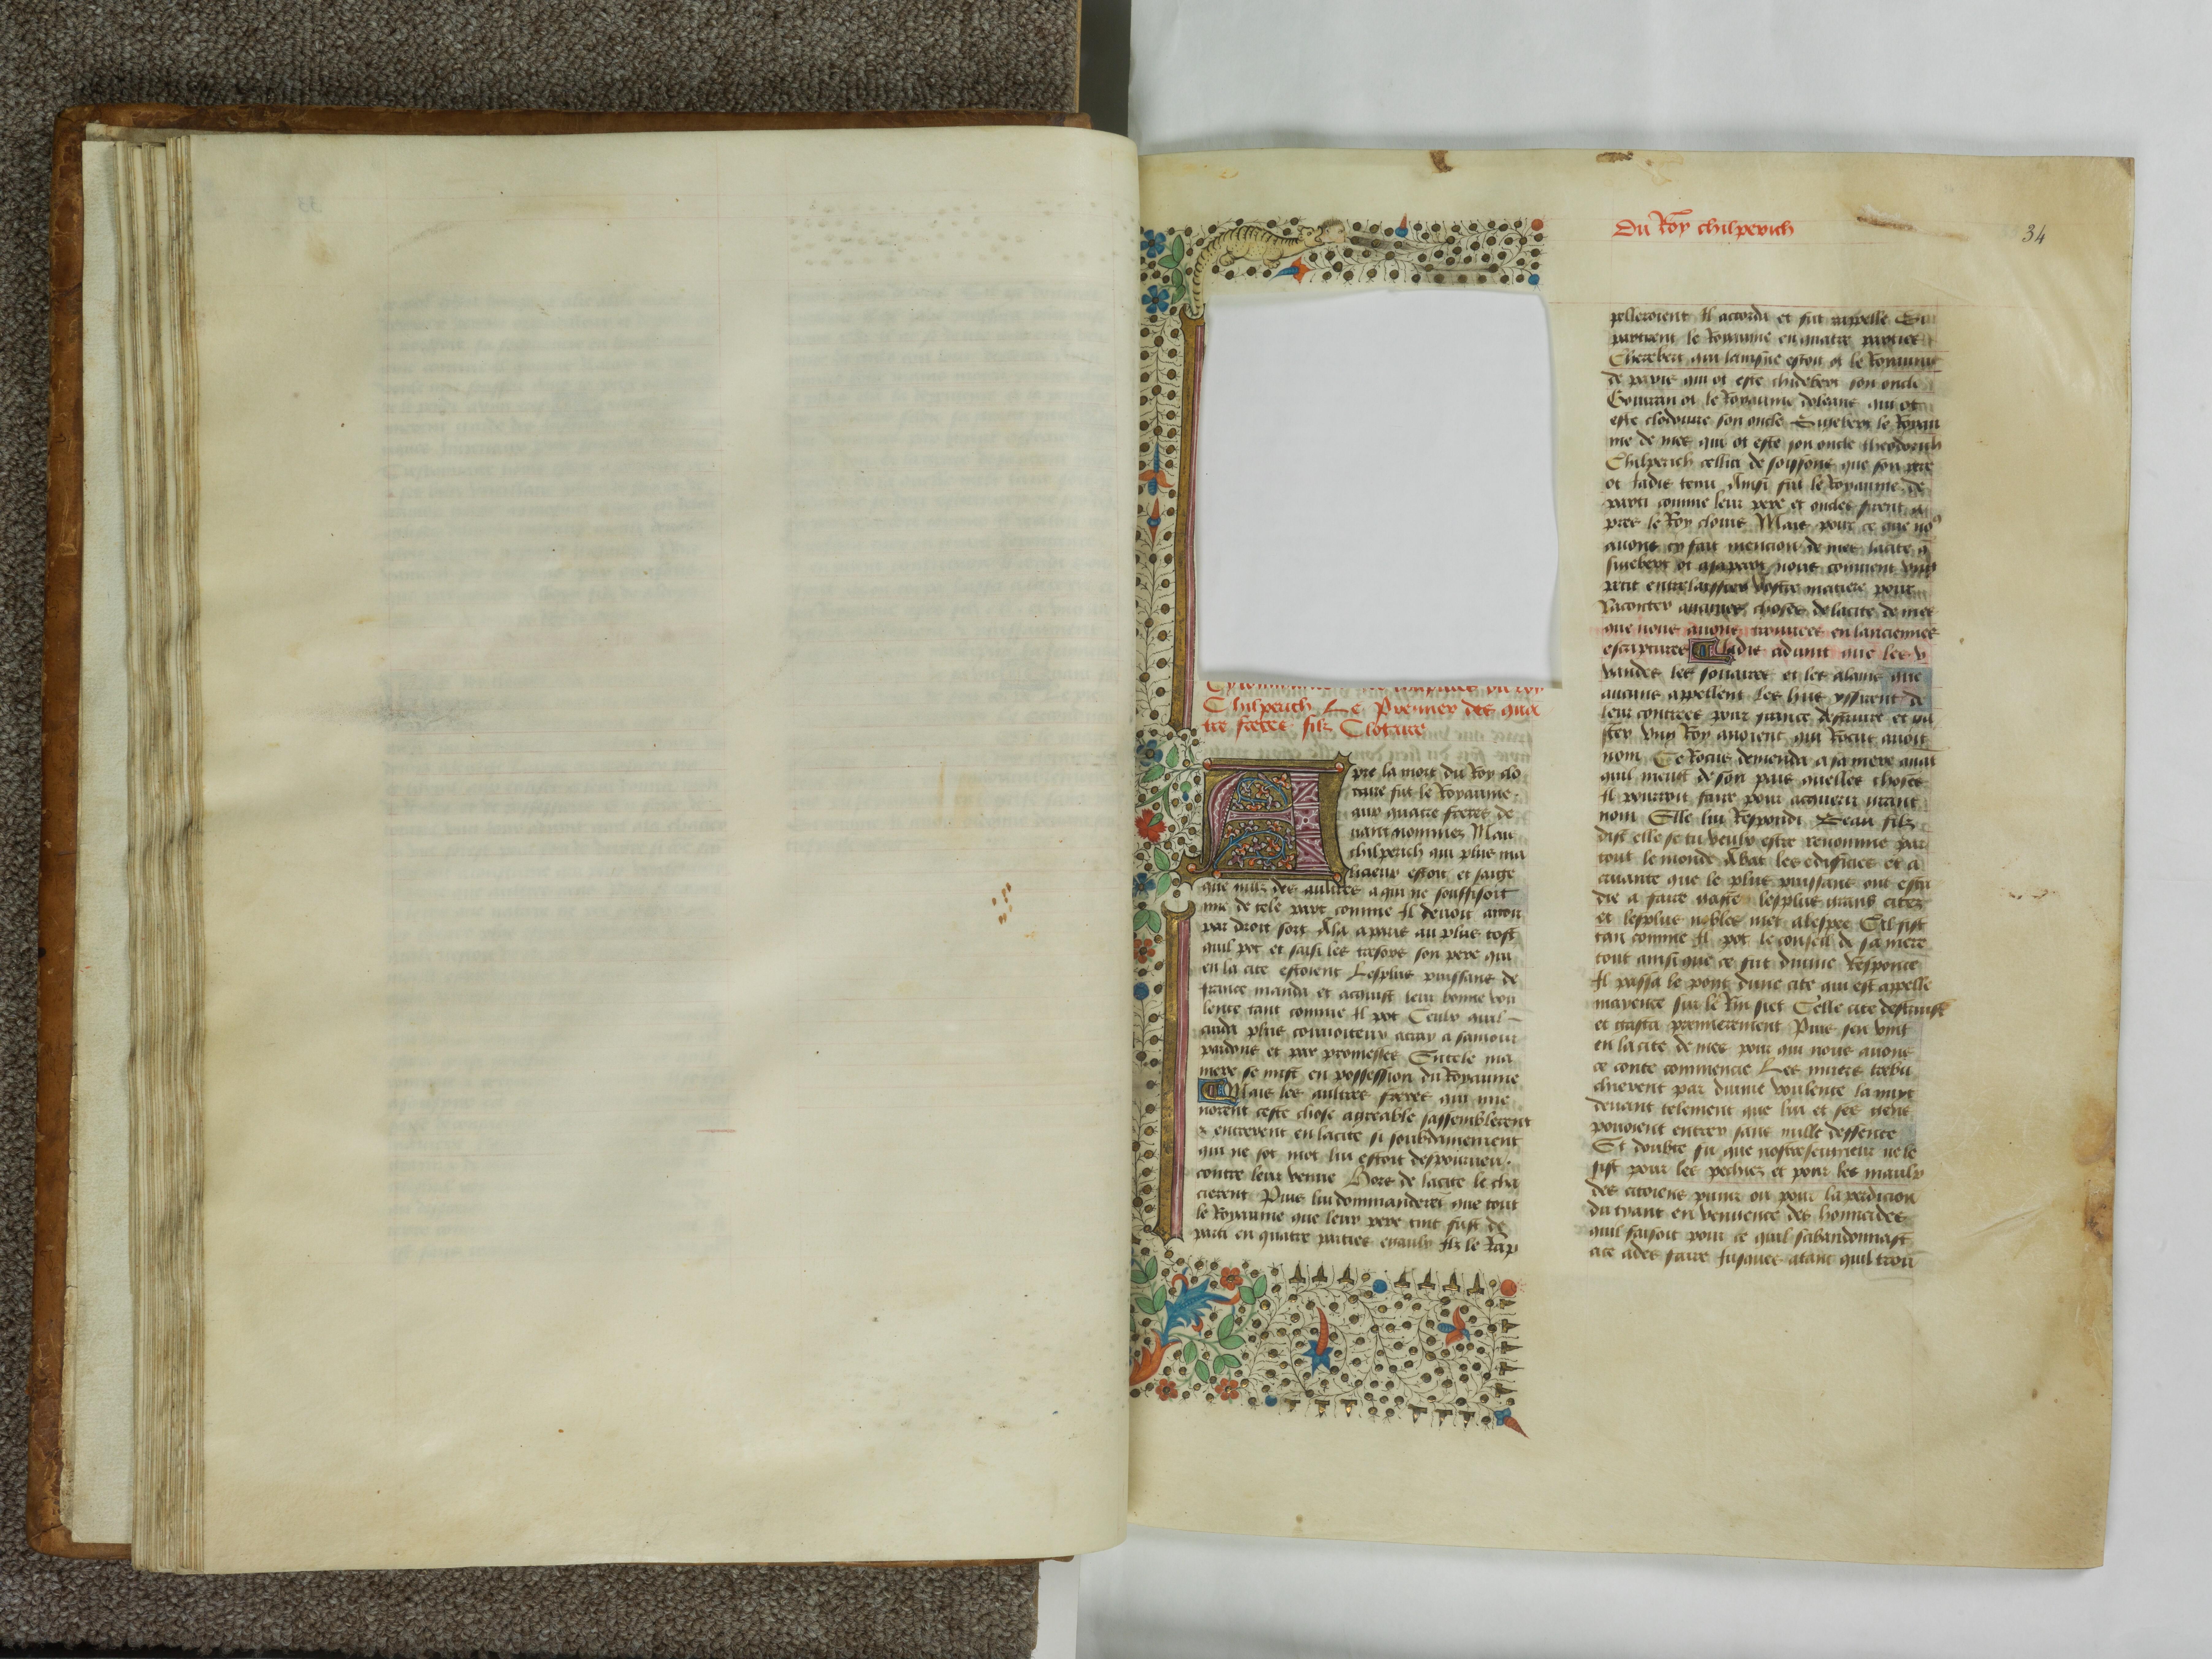 Du Roy chilperich
34
Chilperich Le Premier des qua
tre freres filz Clotaire
Apre la mort du Roy clo
taire fut le Royaume
aux quatre freres de
uant nommez Mais
chilperich qui plus ma
licieux estoit et saige
que nulz des aultres a qui ne souffisoit
mie de tele part comme Il deuoit auoir
par droit sort Ala a paris au plus tost
quil pot et saisi les tresors son pere qui
en la cite estoient Lesplus puissans de
france manda et acquist leur bonne vou
lente tant comme Il pot Ceulx quil
cuida plus conuoiteux atray a samour
pardons et par promesses En tele ma
niere se mist en possession du Royaume
Mais les aultres freres qui mie
norent ceste chose agreable sassemblerent
& entrerent en lacite si soubdainement
qui ne sot mot lui estoit despourueu
contre leur venue Hors de lacite le cha
cierent Puis lui commanderent que tout
le Royaume que leur pere tint fust de
parti en quatre parties entreulx Ilz le Rap
pelleroient Il accorda et fut rappelle Ilz
partirent le Royaume en quatre parties
Cherebert qui laisne estoit ot le Royaume
de paris qui ot este childebert son oncle
Gontran ot le Royaume dorleans qui ot
este clodomire son oncle Sigebert le Royau
me de mes qui ot este son oncle theodorich
Chilperich cellui de soissons que son pere
ot Iadis tenu Ainsi fut le Royaume de
parti comme leur pere et oncles firent a
pres le Roy clouis Mais pour ce que no9
auons cy fait mencion de mes lacite q
sigebert ot a sa part nous conuient vng
petit entrelaissier nostre matiere pour
Raconter aucunes choses de lacite de mes
que nous auons trouuees en lanciennes
escriptures Iadis aduint que les v
vandes les souaues et les alains que
aucuns appellent les huns yssirent de
leur contrees pour france destruire et ga
ster vng Roy auoient qui Rocus auoit
nom Ce Rocus demanda a sa mere auant
quil meust de son pais quelles choses
Il pourroit faire pour acquerir grant
nom Elle lui Respondi Beau filz
dist elle se tu veulx estre renomme par
tout le monde Abat les edifices et a
crauante que le plus puissans ont estu
die a faire gaste lesplus grans citez
et lesplus nobles met alespee Cil fist
tan comme Il pot le conseil de sa mere
tout ainsi que ce fut diuine Response
Il passa le pont dune cite qui est appelle
mayence sur le Rin siet Celle cite destruist
et gasta premierement Puis sen vint
en lacite de mes pour qui nous auons
ce conte commencie Les murs trebu
chierent par diuine voulente la nuyt
deuant telement que lui et ses gens
pouoient entrer sans nulle deffence
Et doubte fu que nostreseigneur ne le
fist pour les pechiez et pour les maulx
des citoiens punir ou pour la perdicion
du tyrant en vengence des homicides
quil faisoit pour ce quil sabandonnast
a ce ades faire Iusques atant quil trou